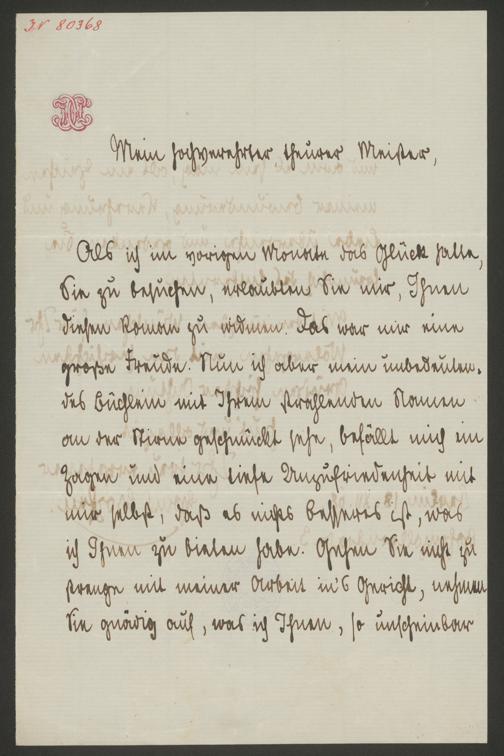 IN 80368
Mein hochverehrter, theurer Meister,
Als ich im vorigen Monate das Glück hatte,
Sie zu besuchen, erlaubten Sie mir, Ihnen
diesen Roman zu widmen. Das war mir eine
große Freude. Nun ich aber mein unbedeuten-
des Büchlein mit Ihrem strahlenden Namen
an der Stirne geschmückt sehe, befällt mich ein
Zagen und eine tiefe Unzufriedenheit mit
mir selbst, daß es nichts besseres ist, was
ich Ihnen zu bieten habe. Gehen Sie nicht zu
strenge mit meiner Arbeit in's Gericht, nehmen
Sie gnädig auf, was ich Ihnen, so unscheinbar